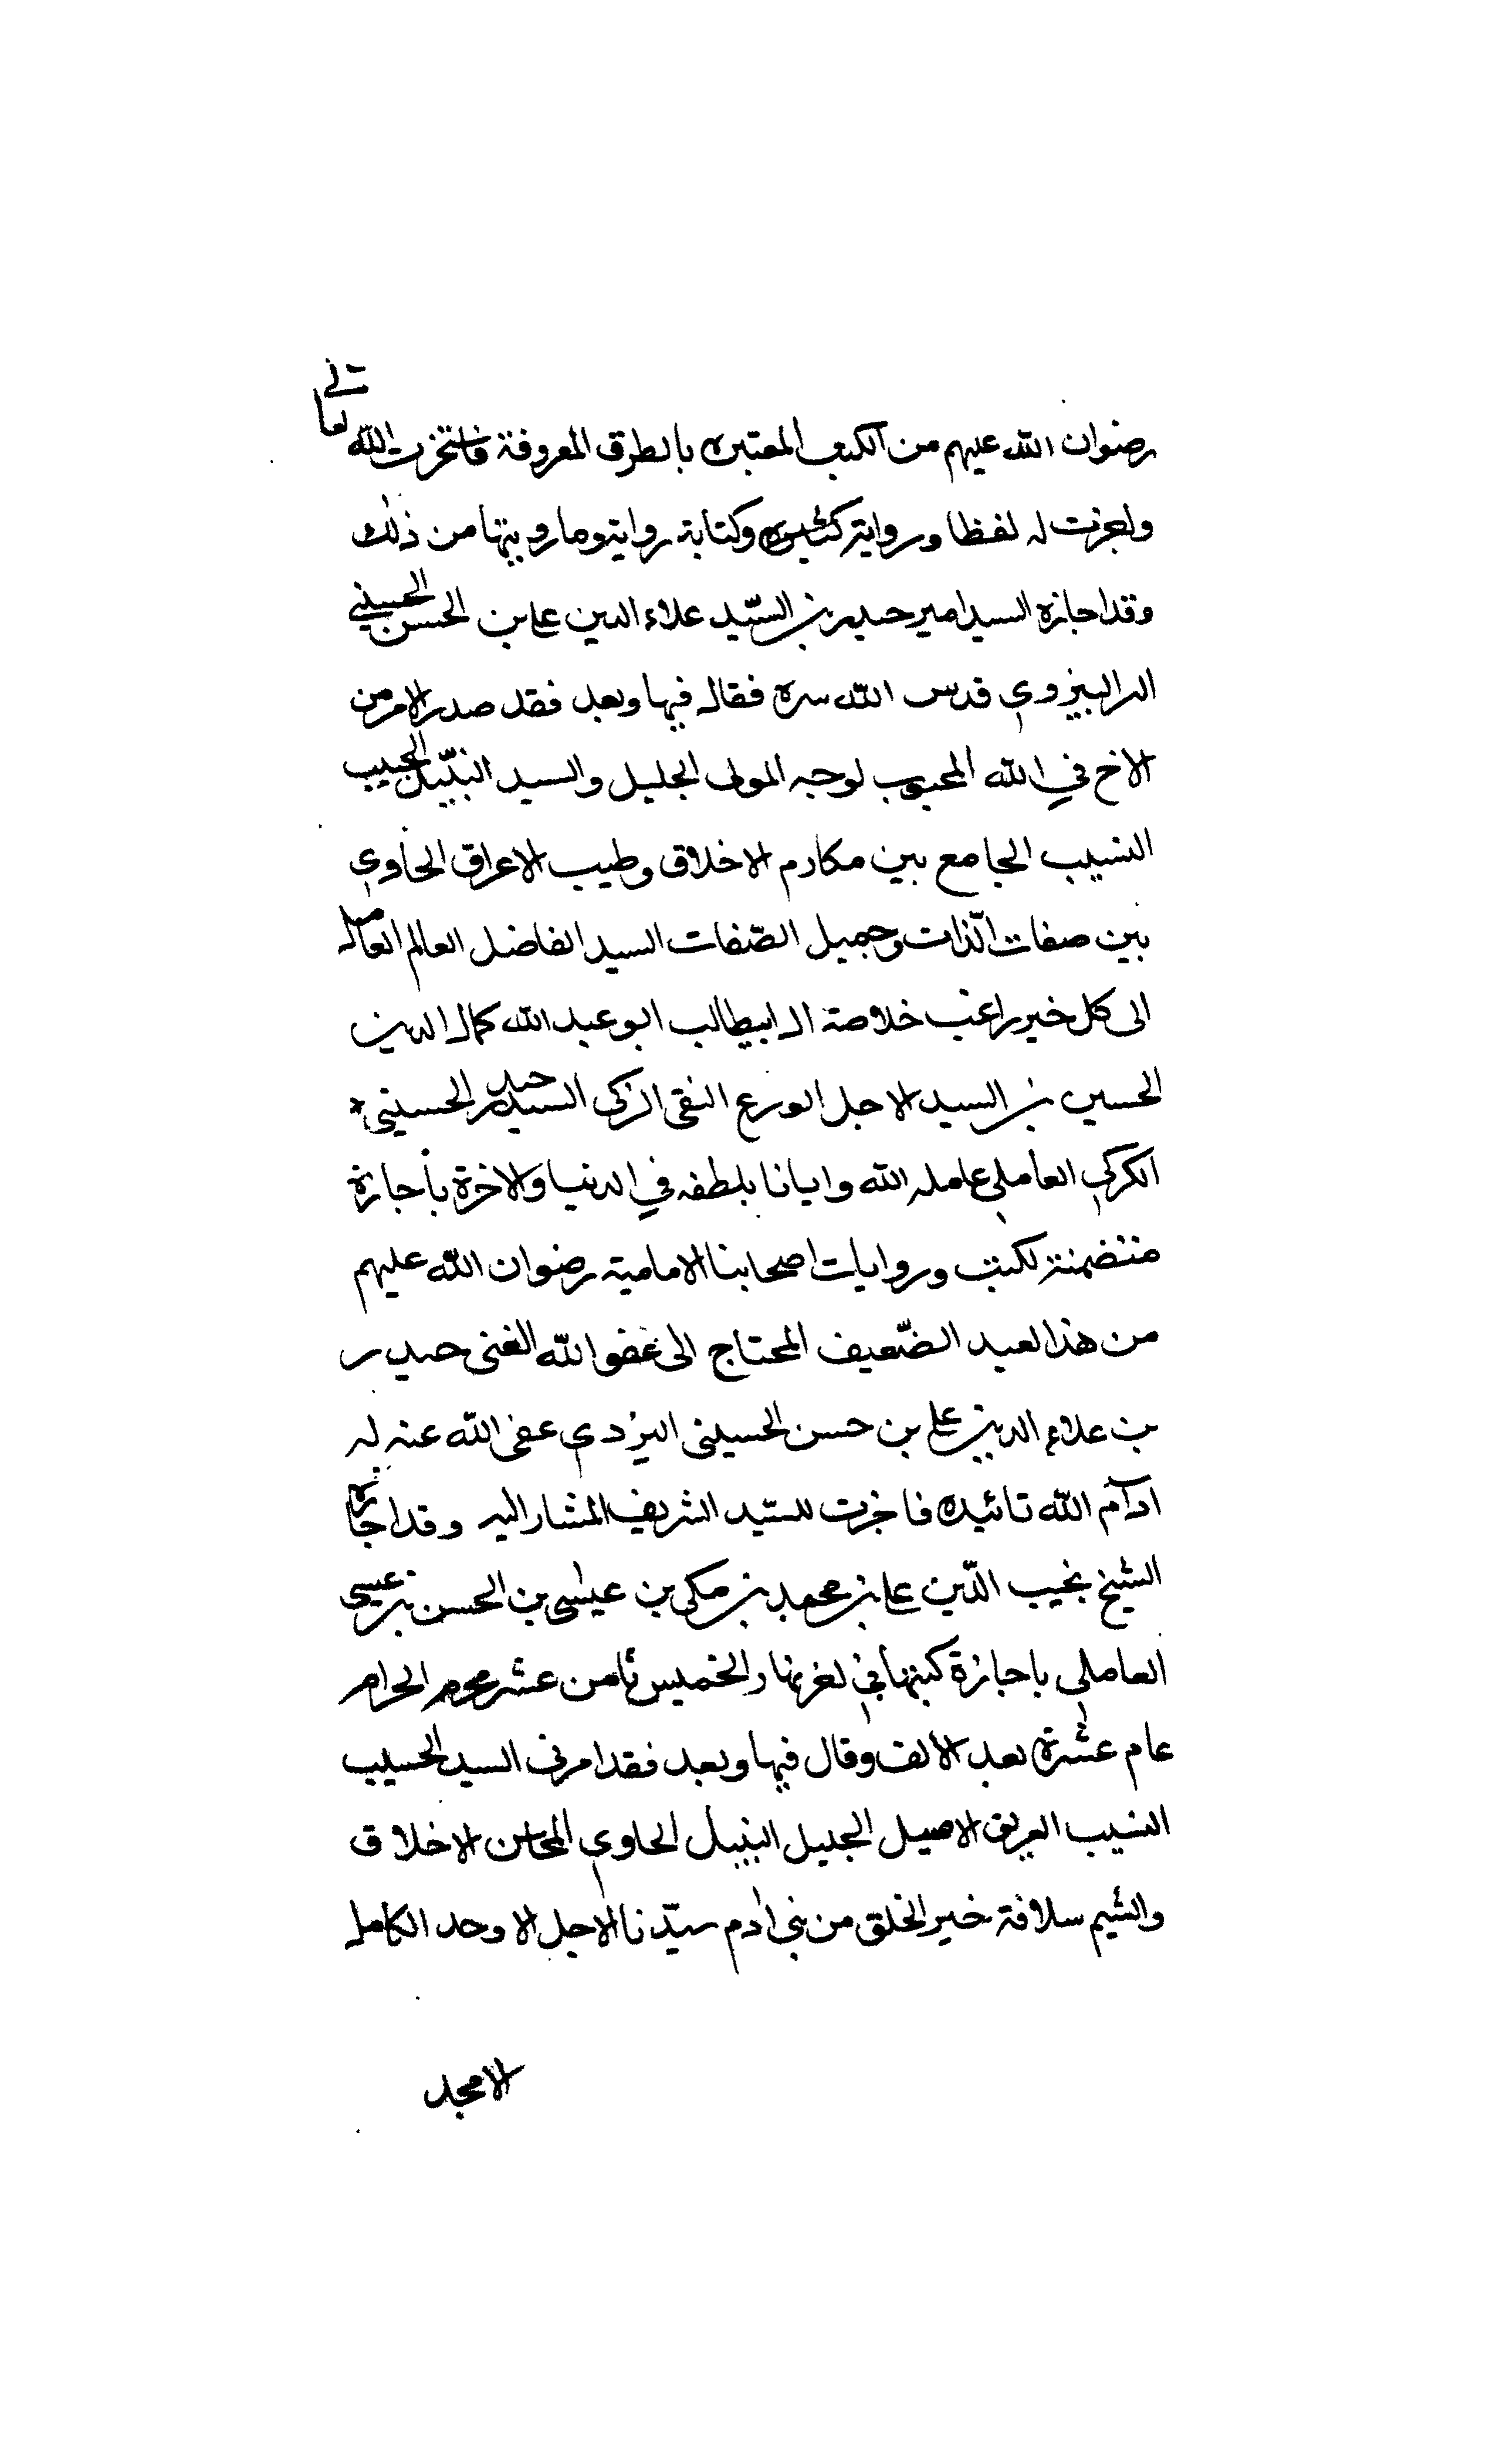 رضوان الله عليهم من الكتب المعتبره بالطرق المعروفة فاستخرت الله تعالى
واجزت له لفظا ورواية كثيره وكتابة روايتي وما رويتها من ذلك
وقد اجازه السيد امير حيدر بن السيّد علاء الدين علي بن الحسن الحسيني
البيزوي قدس الله سره فقال فيها وبعد فقد صدر الامر من
الاخ في الله المحبوب لوجه المولى الجليل والسيد النبيل الحسيب
النسيب الجامع بين مكارم الاخلاق وطيب الاعراق الحاوي
بين صفات الذات وجميل الصّفات السيد الفاضل العالم العامل
الى كل خير راغب خلاصة ال ابيطالب ابو عبد الله كمال الدين
الحسين بن السيد الاجل الورع التقى الزكى السيد حيدر الحسيني
الكركي العاملي عامله الله وايانا بلطفه في الدنيا والاخرة باجازة
متضمنة لكتب وروايات اصحابنا الامامية رضوان الله عليهم
من هذا لعبد الضّعيف المحتاج الى عفو الله الغنى حيدر
بن علاء الدين علي بن حسن الحسينى اليزدي عفى الله عنه له
ادام الله تائيده فاجزت للسّيد الشريف المشار اليه وقد اجازه
الشيخ نجيب الدّين علي بن محمد بن مكى بن عيسى بن الحسن بن عيسى
العاملي باجازة كتبتها في اخرنهار الخميس ثامن عشر محرم الحرام
عام عشرة بعد الالف وقال فيها وبعد فقد امرنى السيد الحسيب
النسيب العريق الاصيل الجليل النبيل الحاوي المحاسن الاخلاق
والشيم سلافة خير الخلق من بني ادم سيّدنا الاجل الا وحد الكامل
الامجد